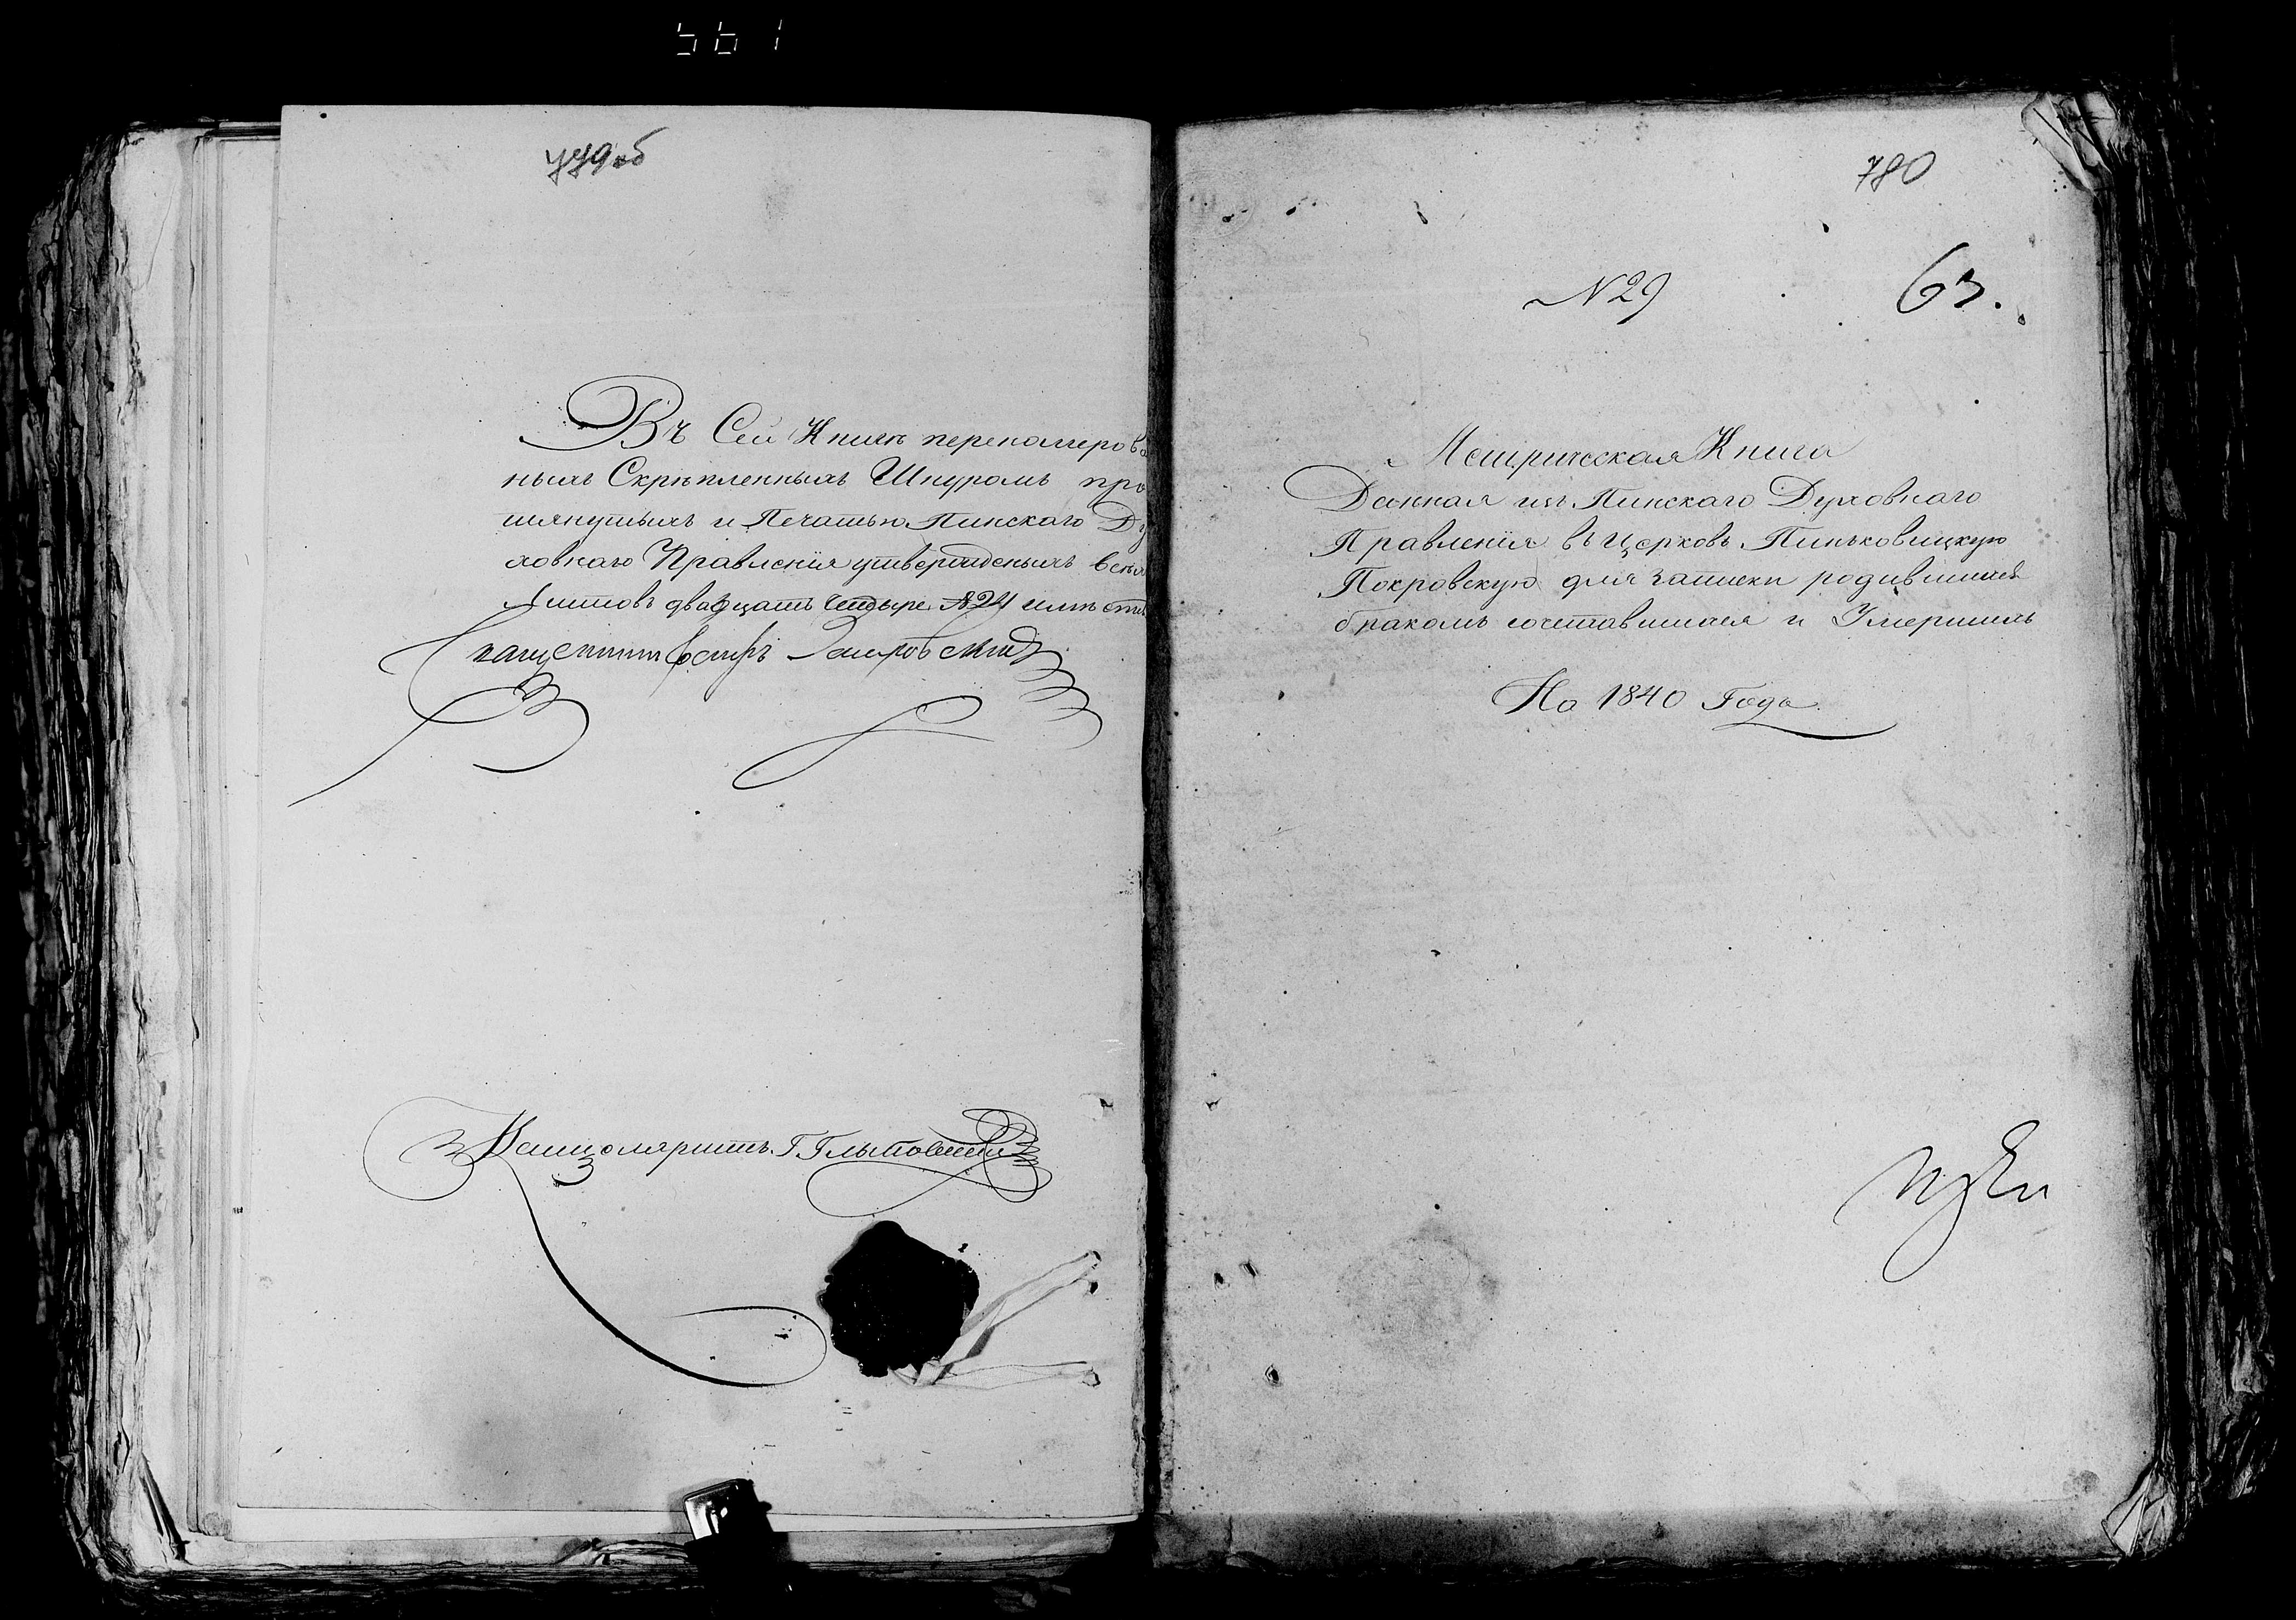 779об
Въ Сей Книге перенамерова
ныхъ Скрѣпленныхъ Шнуромъ про
шянутыхъ и Печатью Пинскаго Ду
ховнаго Правленія утвержденыхъ всехъ
Листовъ двадцать четыре №24
Канцеляристъ Г
780
N29
63.
Метрическая Книга
Данная изъ Пинскаго Духовнаго
Правленія въ церковь Пиньковицкую
Покровскую для записки родившихся
бракомъ сочетавшихся и Умершихъ
На 1840 Годъ